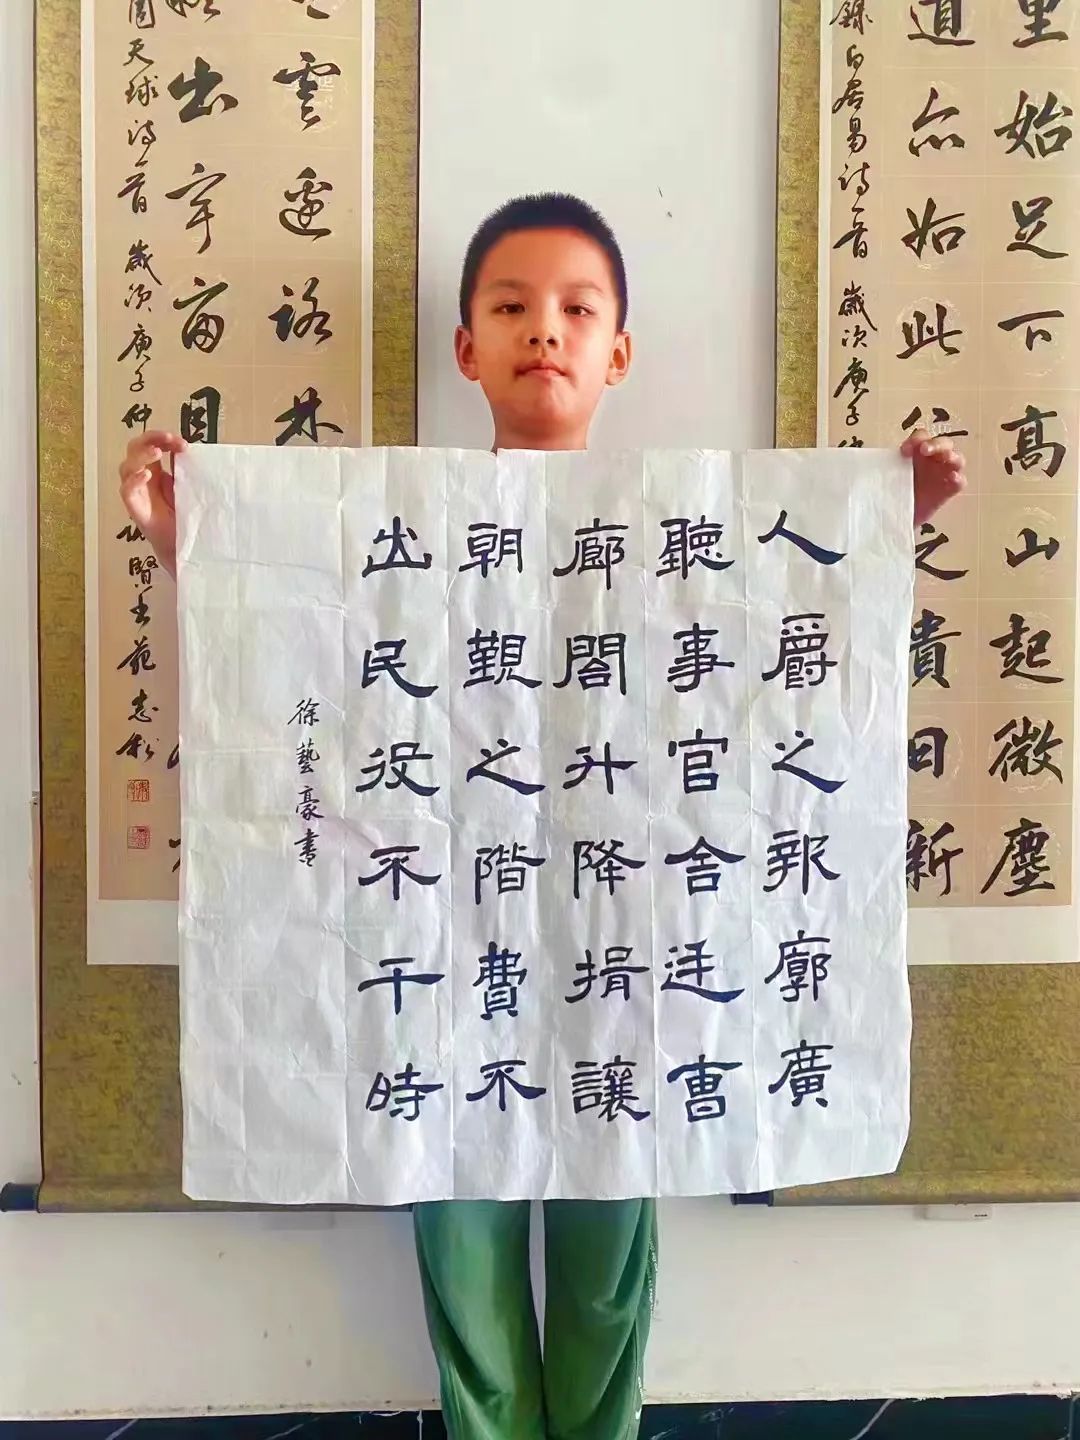 里始足下高山起微塵
道亦如此行之貴日新
錄白居易詩一首 歲次庚子仲
人爵之報廓廣
聽事官舍廷曹
廊閣升降揖讓
朝覲之階費不
出民役不干時
徐藝豪書
雲邊路林
出宇宙目
周天球詩一首 歲次庚子仲 賢書苑志松